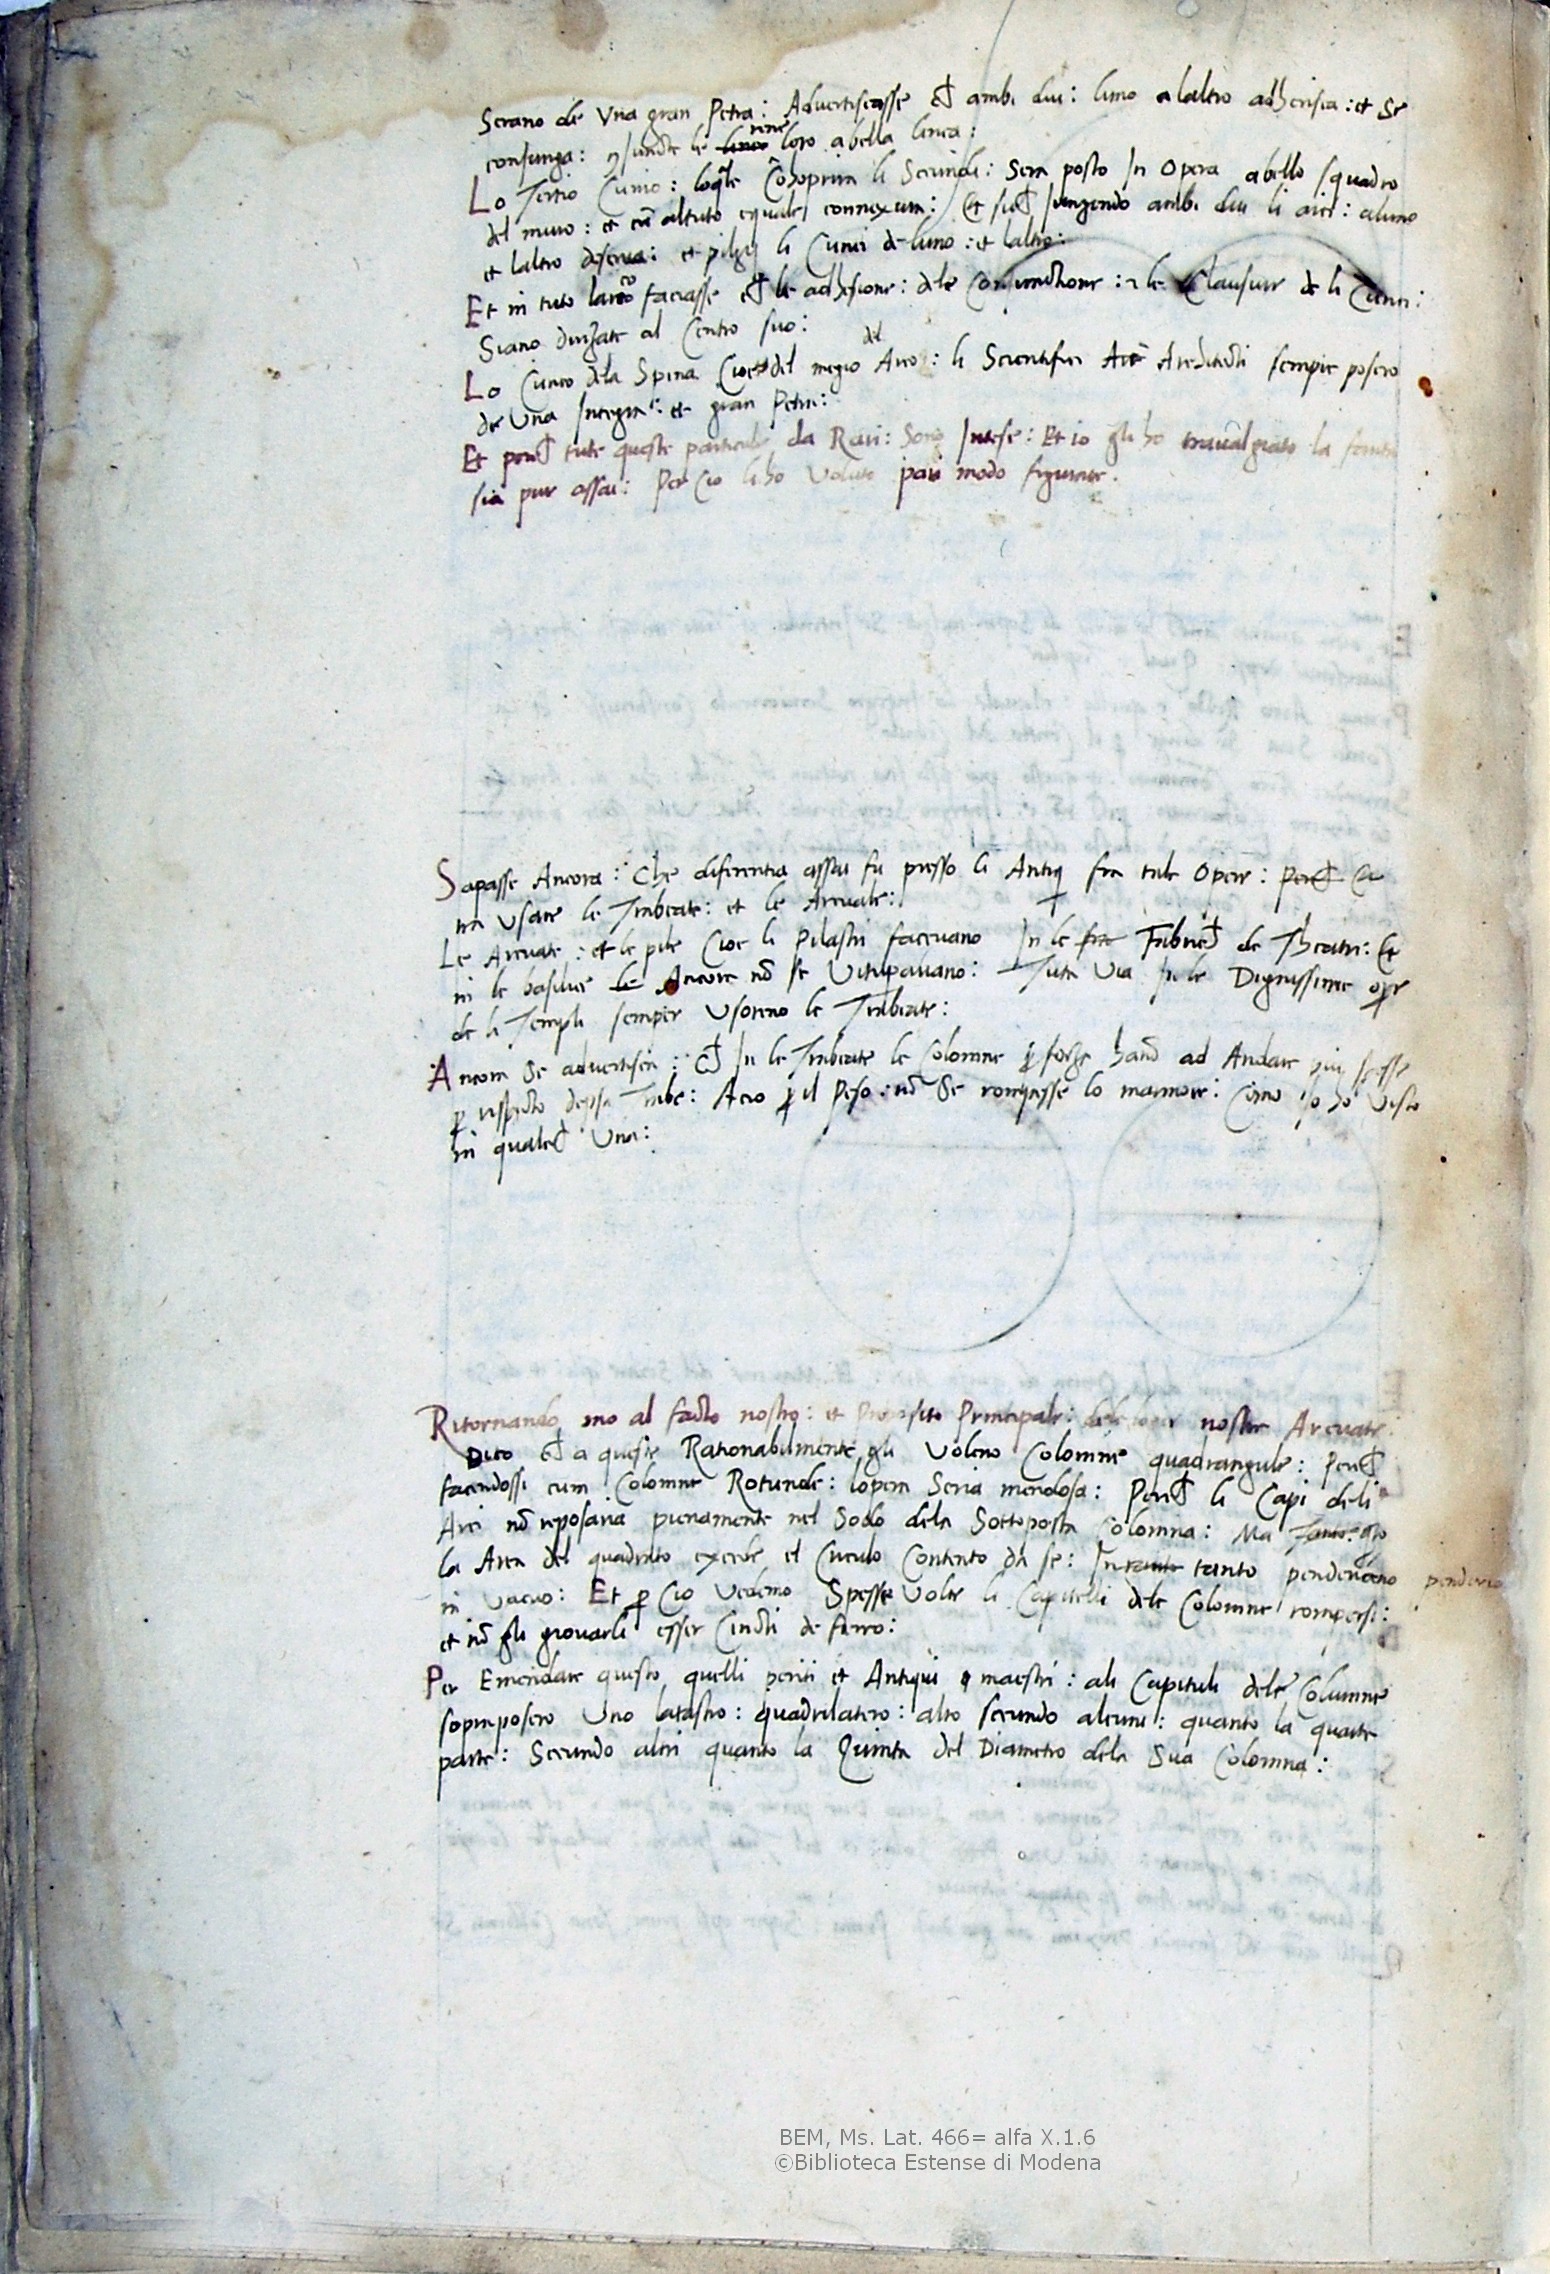 Serano de Una gran Petra: Advertiscasse ch ambi dui: luno a laltro adherisca: et se
consunga: le rene loro a bella linea:
Lo Tertio Cunio: loqle Cohoprira li Secundi: Sera posto In Opera abello squadro
del muro: et altuto equale, connexura: Et such Iungendo ambi dui li arci: aluno
et laltro deserva: et pilgij li Cunei de luno: et laltro:
Et in tuto larco faciasse ch le adhesione: dele Consunctione: le Clausure de li Cunei:
Siano dirizate al Centro suo:
Lo Cuneo dela Spina Cioe del megio del Arco: li Scientifici Architecti sempre posero
de Una Integra: et gran Petra:
Et perch tute queste particule da Rari: Sono Intese: Et io gli ho travalgiato la fantu
sia pur assai: Per Cio li ho Voluto modo figurare.
Sapasse Ancora: Che diferentia assai fu presso li Antiq fra tale Opere: perch
tra Usare le Trabeate: et le Arcuate:
Le Arcuate: et le pile Cioe li Pilastri facevano In le fra Fabrich de Theatri: Et
in le basilice le Ancore nō se Vituperavano: Tuta Via In le Dignissime opre
de li Templi semper Usoreno le Trabeate:
Ancora Se advertisca: Ch In le Trabeate le Colomne p forza hano ad Andare piu spesse
p respecto depsa Trabe: Acio p il Peso: nō Se rompasse lo marmore: Como Io ho Visto
in qualch Una:
Ritornando mo al facto nostro: et Proposito Principale: nostre Arcuate:
Dico ch a queste Rationabilmente gli Voleno Colomne quadrangule: Perch
facendossi cum Colomne Rotunde: lopera Seria mendosa: Perch li Capi deli
Arci nō reposaria pienamente nel Sodo dela Sottoposta Colomna: Ma qto
la Area del quadrato excede el Circulo Contento da se: In tanto penderiano penderio
in vacuo: Et p Cio Vedemo Spesse Volte li Capitelli dele Colomne rompersi:
et nō gli giovarli esser Cincti de ferro:
Per Emendare questo quelli periti et Antiqui maestri: ali Capituli dele Columne
sopraposero Uno latastro: quadrilatero: alto secundo alcuni: quanto la quarte
parte: Secundo altri quanto la Quinta del Diametro dela Sua Colomna:
BEM, Ms. Lat. 466= alfa X.1.6
©Biblioteca Estense di Modena